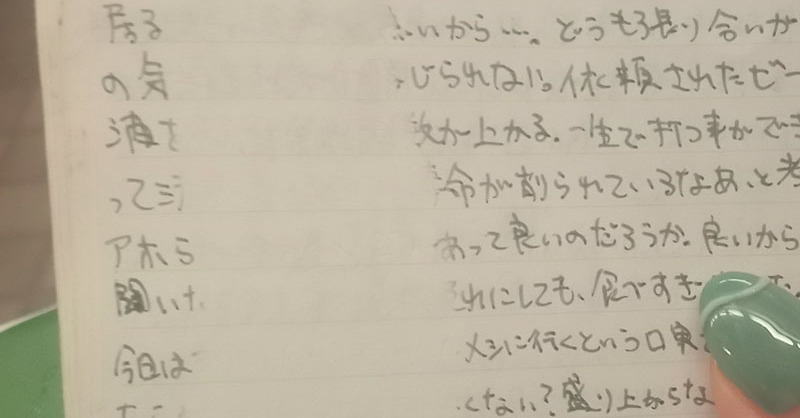 居る いから…。どうも張り合いが
の気 じられない。依頼されたビー
消す 次が上がる。一生で打つ事ができ
って 命が削られているなぁ、と考
アホら あって良いのだろうか。良いから
聞いた れにしても、食べすぎ
今日は メシに行くという口実
くない?盛り上がらな